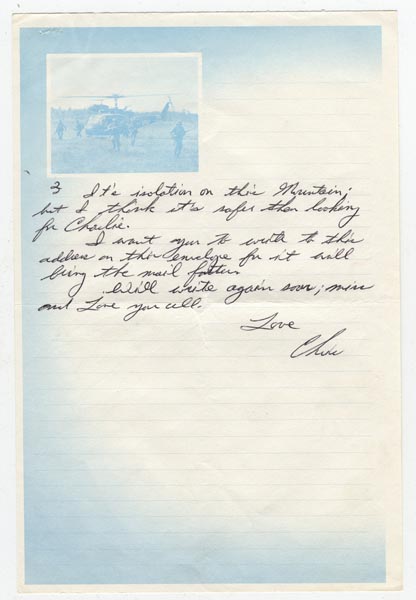 3 It's isolation on this Mountain;
but I think it's safer then looking
for Charlie.
I want you to write to this
address on this envelope for it will
bring the mail faster.
Will write again soon; miss
and Love you all.
Love